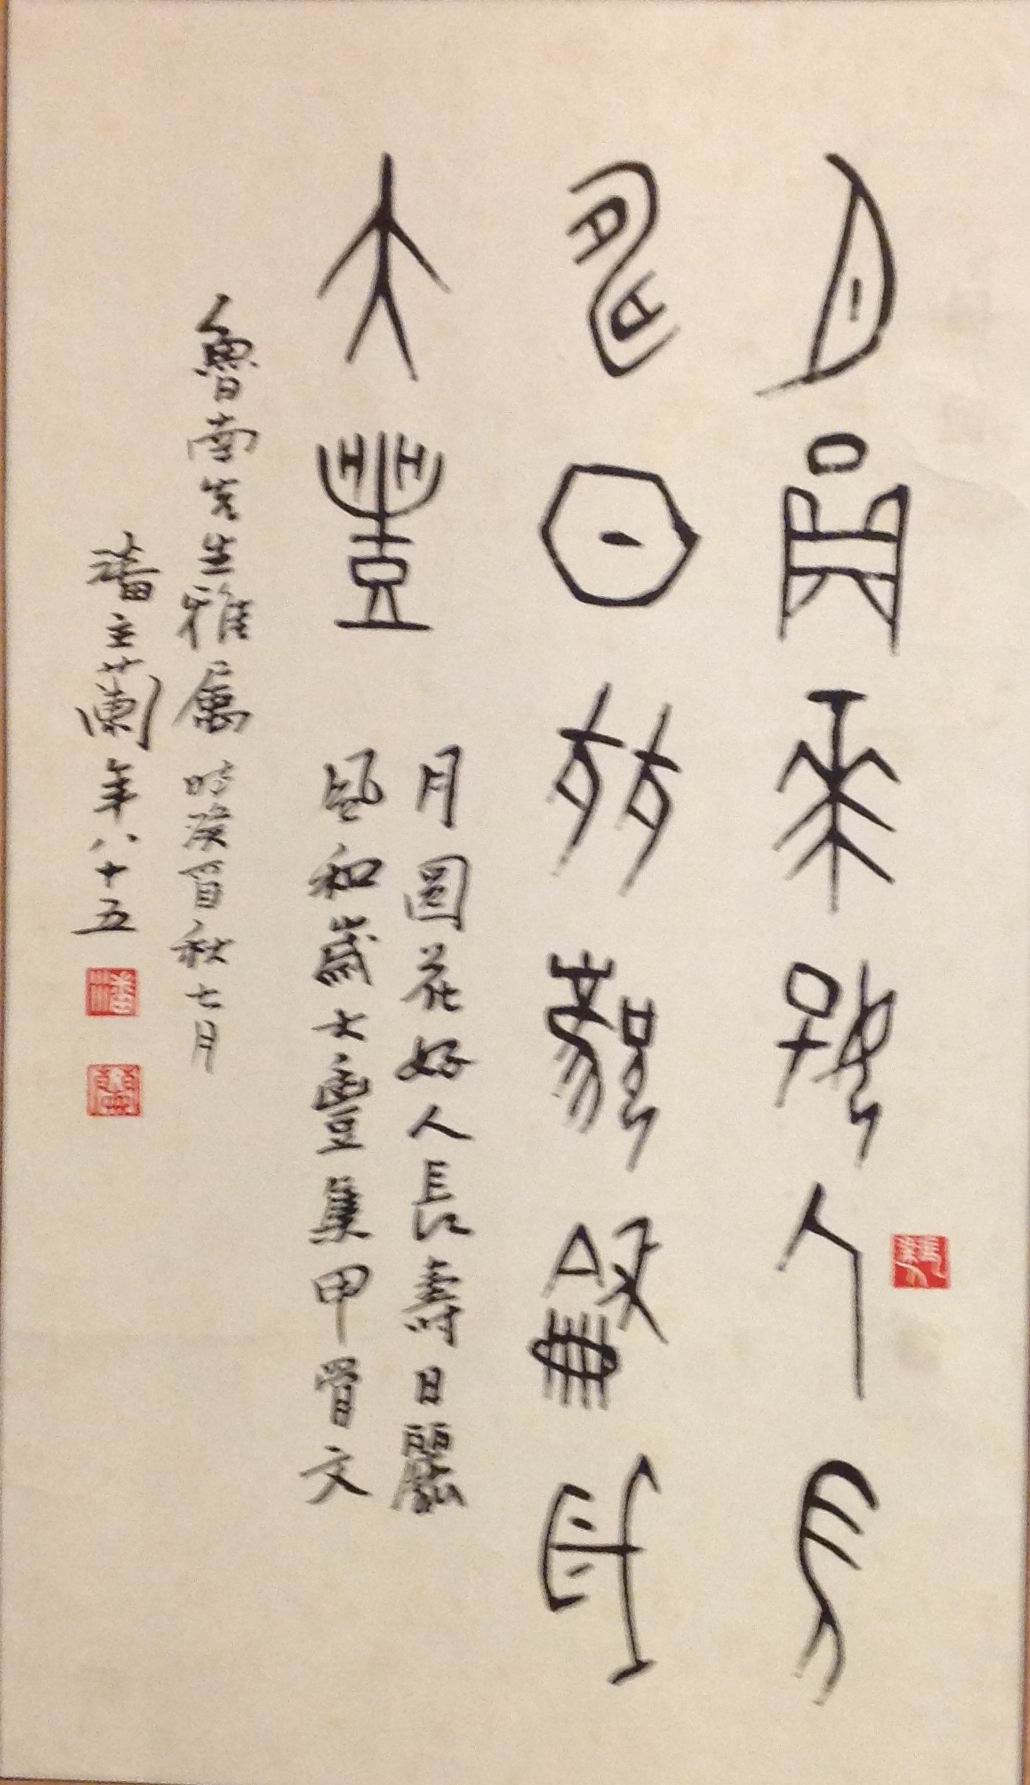 月圓花好人長
壽日麗風和歲
大豐
月圓花好人長壽日麗
風和歲大豐集甲骨文
魯南先生雅屬時癸酉秋七月
潘主蘭年八十五